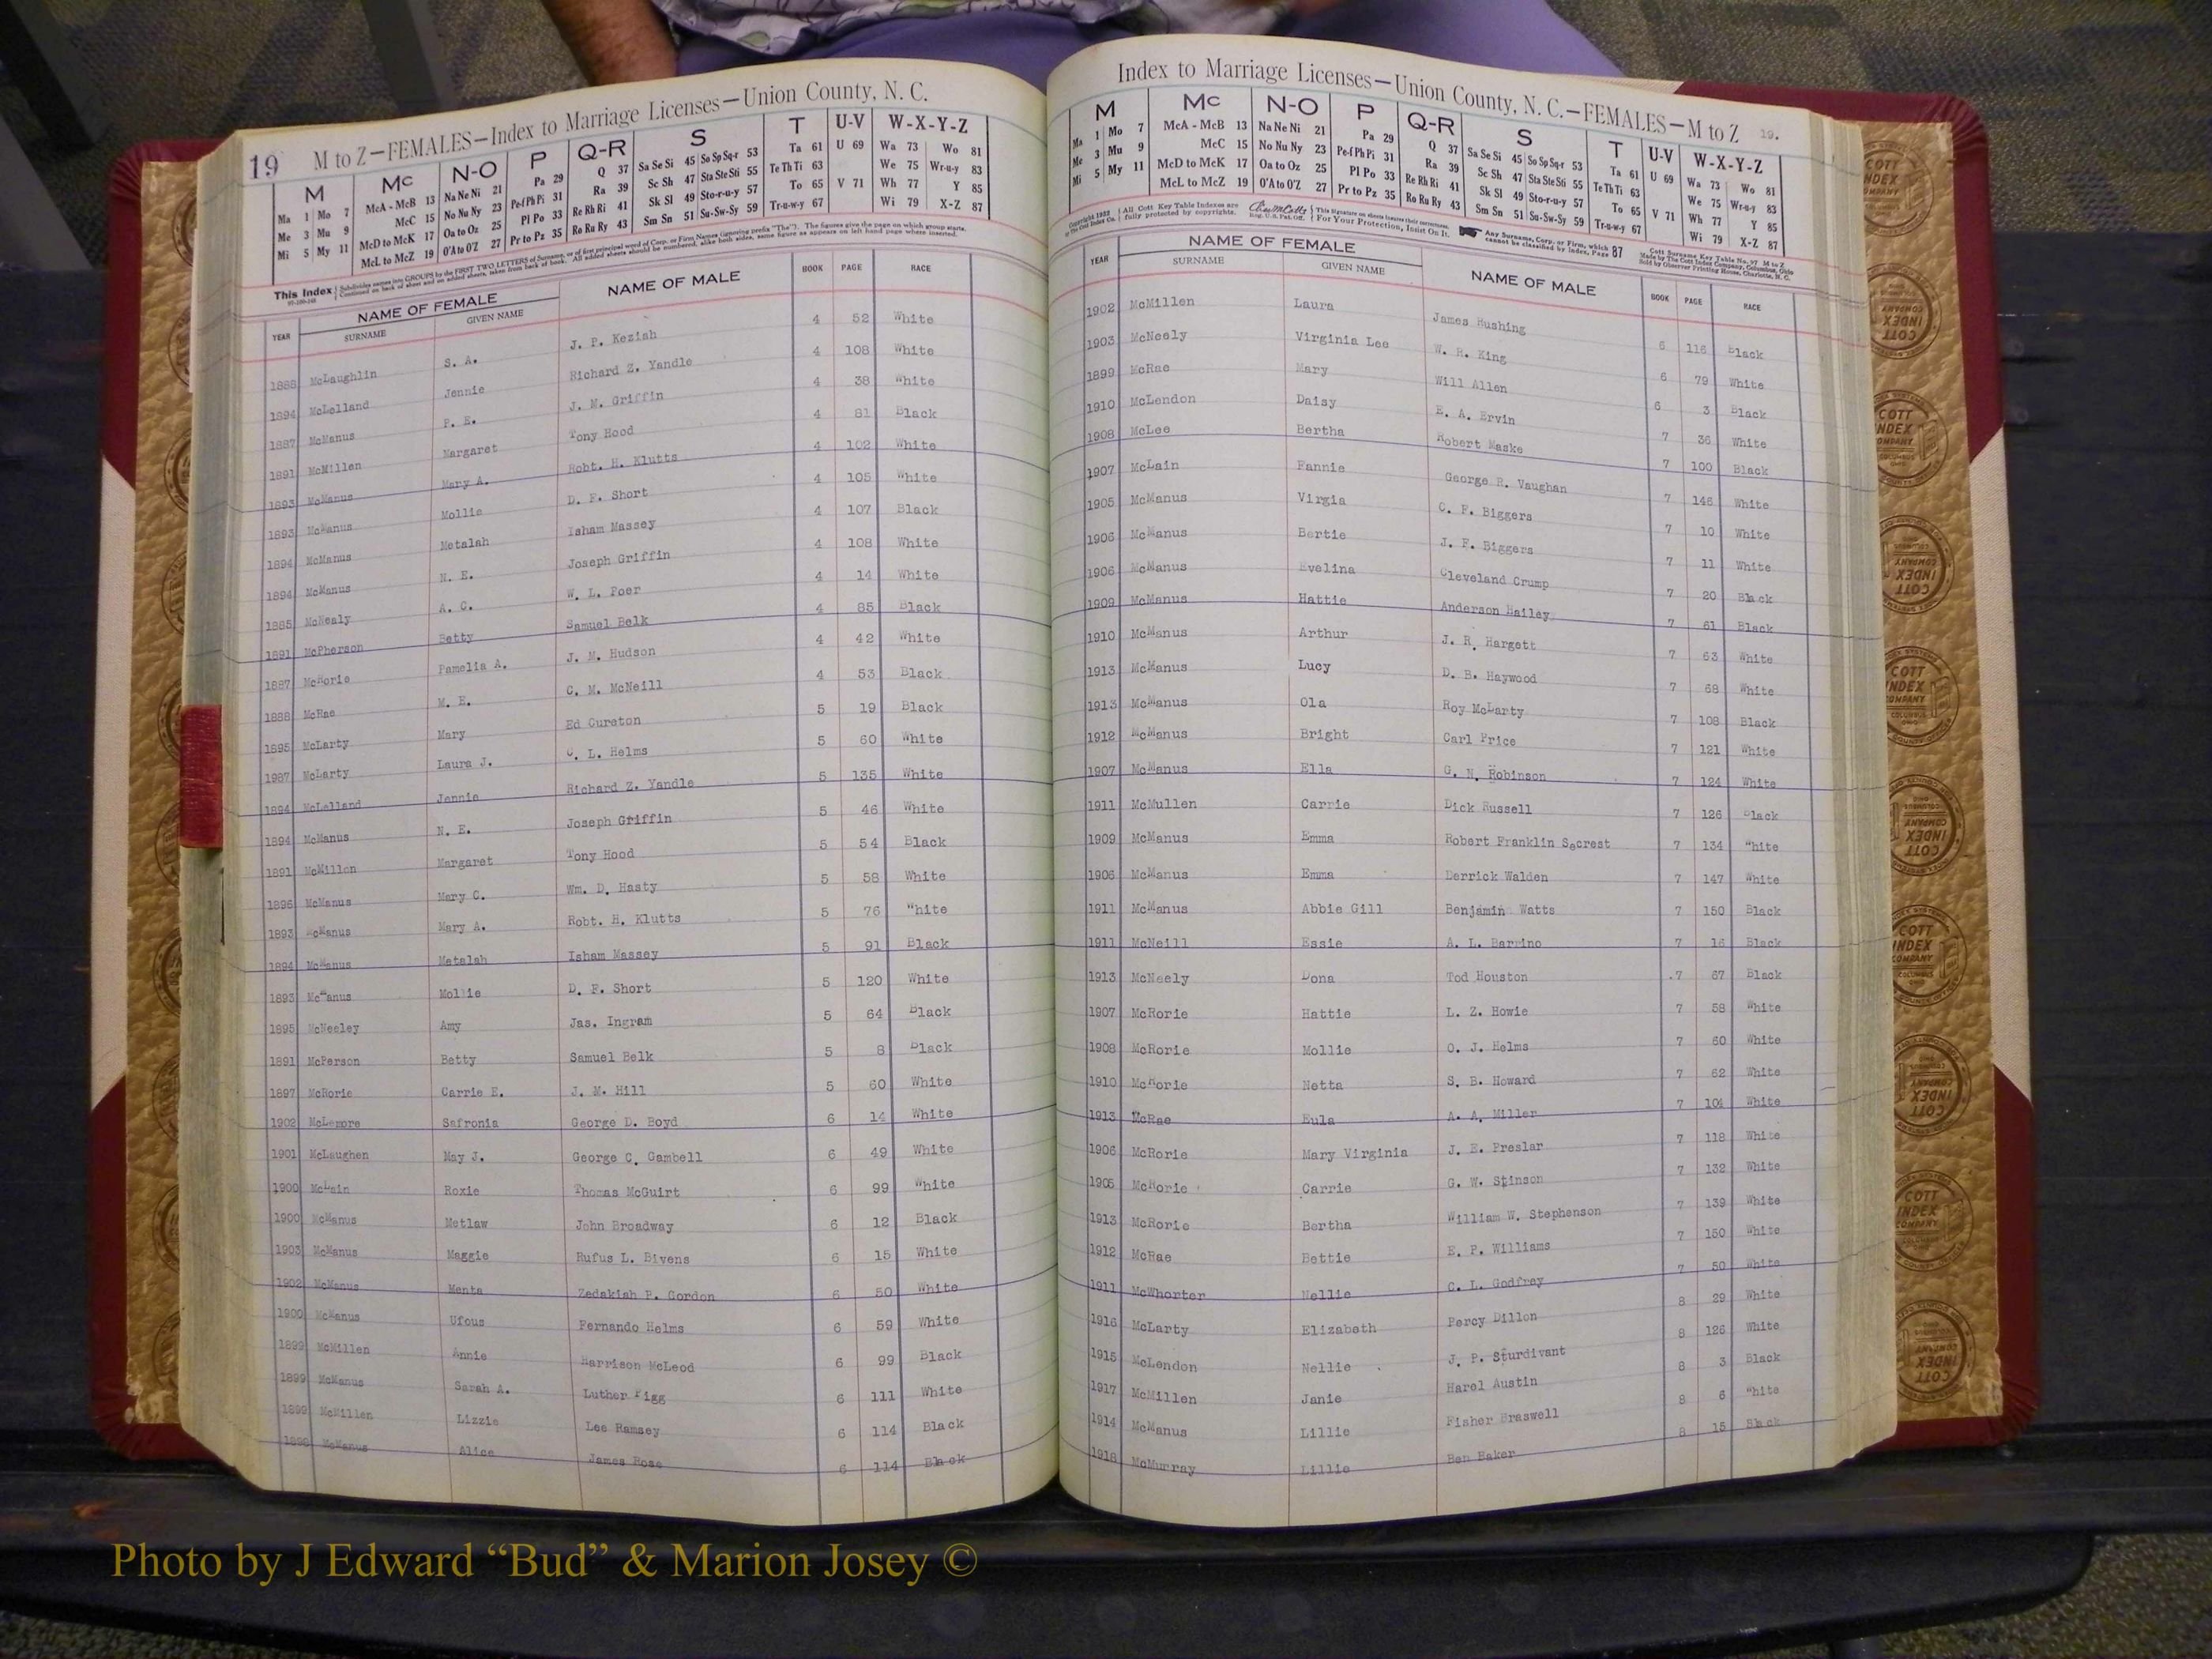 19 M to Z—FEMALES—Index to Marriage Licenses—Union County, N. C.
M Mc N-O P Q-R S T U-V W-X-Y-Z
Ma 1 Mo 7 McA - McB 13 Na Ne Ni 21 Pa 29 Q 37 Sa Se Si 45 So Sp Sq-r 53 Ta 61 U 69 Wa 73 Wo 81
Me 3 Mu 9 McC 15 No Nu Ny 23 Pe-f Ph Pi 31 Ra 39 Sc Sh 47 Sta Ste Sti 55 Te Th Ti 63 We 75 Wr-u-y 83
Mi 5 My 11 McD to McK 17 Oa to Oz 25 Pl Po 33 Re Rh Ri 41 Sk Sl 49 Sto-r-u-y 57 To 65 V 71 Wh 77 Y 85
McL to McZ 19 O'A to O'Z 27 Pr to Pz 35 Ro Ru Ry 43 Sm Sn 51 Su-Sw-Sy 59 Tr-u-w-y 67 Wi 79 X-Z 87
This Index
YEAR NAME OF FEMALE NAME OF MALE BOOK PAGE RACE
SURNAME GIVEN NAME
1888 McLaughlin S. A. J. P. Keziah 4 52 White
1894 McLelland Jennie Richard Z. Yandle 4 108 White
1887 McManus P. E. J. M. Griffin 4 38 White
1891 McMillen Margaret Tony Hood 4 81 Black
1893 McManus Mary A. Robt. H. Klutts 4 102 White
1893 McManus Mollie D. F. Short 4 105 White
1894 McManus Metalah Isham Massey 4 107 Black
1894 McManus N. E. Joseph Griffin 4 108 White
1885 McNealy A. C. W. L. Poer 4 14 White
1891 McPherson Betty Samuel Belk 4 85 Black
1887 McRorie Pamelia A. J. M. Hudson 4 42 White
1888 McRae M. E. C. M. McNeill 4 53 Black
1895 McLarty Mary Ed Cureton 5 19 Black
1987 McLarty Laura J. C. L. Helms 5 60 White
1894 McLelland Jennie Richard Z. Yandle 5 135 White
1894 McManus N. E. Joseph Griffin 5 46 White
1891 McMillen Margaret Tony Hood 5 54 Black
1896 McManus Mary C. Wm. D. Hasty 5 58 White
1893 McManus Mary A. Robt. H. Klutts 5 76 White
1894 McManus Metalah Isham Massey 5 91 Black
1893 McManus Mollie D. F. Short 5 120 White
1895 McNeeley Amy Jas. Ingram 5 64 Black
1891 McPerson Betty Samuel Belk 5 8 Black
1897 McRorie Carrie E. J. M. Hill 5 60 White
1902 McLemore Safronia George D. Boyd 6 14 White
1901 McLaughen May J. George C. Gambell 6 49 White
1900 McLain Roxie Thomas McGuirt 6 99 White
1900 McManus Metlaw John Broadway 6 12 Black
1903 McManus Maggie Rufus L. Bivens 6 15 White
1902 McManus Menta Zedakiah P. Gordon 6 50 White
1900 McManus Ufous Fernando Helms 6 59 White
1899 McMillen Annie Harrison McLeod 6 99 Black
1899 McManus Sarah A. Luther Figg 6 111 White
1899 McMillen Lizzie Lee Ramsey 6 114 Black
1898 McManus Alice James Rose 6 114 Black
Index to Marriage Licenses—Union County, N. C.—FEMALES—M to Z 19.
M Mc N-O P Q-R S T U-V W-X-Y-Z
Ma 1 Mo 7 McA - McB 13 Na Ne Ni 21 Pa 29 Q 37 Sa Se Si 45 So Sp Sq-r 53 Ta 61 U 69 Wa 73 Wo 81
Me 3 Mu 9 McC 15 No Nu Ny 23 Pe-f Ph Pi 31 Ra 39 Sc Sh 47 Sta Ste Sti 55 Te Th Ti 63 We 75 Wr-u-y 83
Mi 5 My 11 McD to McK 17 Oa to Oz 25 Pl Po 33 Re Rh Ri 41 Sk Sl 49 Sto-r-u-y 57 To 65 V 71 Wh 77 Y 85
McL to McZ 19 O'A to O'Z 27 Pr to Pz 35 Ro Ru Ry 43 Sm Sn 51 Su-Sw-Sy 59 Tr-u-w-y 67 Wi 79 X-Z 87
All Cott Key Table Indexes are fully protected by copyrights. For Your Protection, Insist On It. Any Surname, Corp. or Firm, which cannot be classified by Index, Page 87
YEAR NAME OF FEMALE NAME OF MALE BOOK PAGE RACE
SURNAME GIVEN NAME
1902 McMillen Laura James Rushing 6 116 Black
1903 McNeely Virginia Lee W. R. King 6 79 White
1899 McRae Mary Will Allen 6 3 Black
1910 McLendon Daisy E. A. Ervin 7 36 White
1908 McLee Bertha Robert Maske 7 100 Black
1907 McLain Fannie George R. Vaughan 7 146 White
1905 McManus Virgia C. F. Biggers 7 10 White
1906 McManus Bertie J. F. Biggers 7 11 White
1906 McManus Evelina Cleveland Crump 7 20 Black
1909 McManus Hattie Anderson Hailey 7 61 Black
1910 McManus Arthur J. R. Hargett 7 63 White
1913 McManus Lucy D. B. Haywood 7 68 White
1913 McManus Ola Roy McLarty 7 108 Black
1912 McManus Bright Carl Price 7 121 White
1907 McManus Ella G. N. Robinson 7 124 White
1911 McMullen Carrie Dick Russell 7 126 Black
1909 McManus Emma Robert Franklin Secrest 7 134 White
1906 McManus Emma Derrick Walden 7 147 White
1911 McManus Abbie Gill Benjamin Watts 7 150 Black
1911 McNeill Essie A. L. Barrino 7 16 Black
1913 McNeely Dona Tod Houston 7 67 Black
1907 McRorie Hattie L. Z. Howie 7 58 White
1908 McRorie Mollie O. J. Helms 7 60 White
1910 McRorie Netta S. B. Howard 7 62 White
1913 McRae Eula A. A. Miller 7 104 White
1906 McRorie Mary Virginia J. E. Preslar 7 118 White
1905 McRorie Carrie G. W. Stinson 7 132 White
1913 McRorie Bertha William W. Stephenson 7 139 White
1912 McRae Bettie E. P. Williams 7 150 White
1911 McWhorter Nellie C. L. Godfrey 7 50 White
1916 McLarty Elizabeth Percy Dillon 8 29 White
1915 McLendon Nellie J. P. Sturdivant 8 126 White
1917 McMillen Janie Harel Austin 8 3 Black
1914 McManus Lillie Fisher Braswell 8 6 White
1918 McMurray Lillie Ben Baker 8 15 Black
Photo by J Edward “Bud” & Marion Josey ©